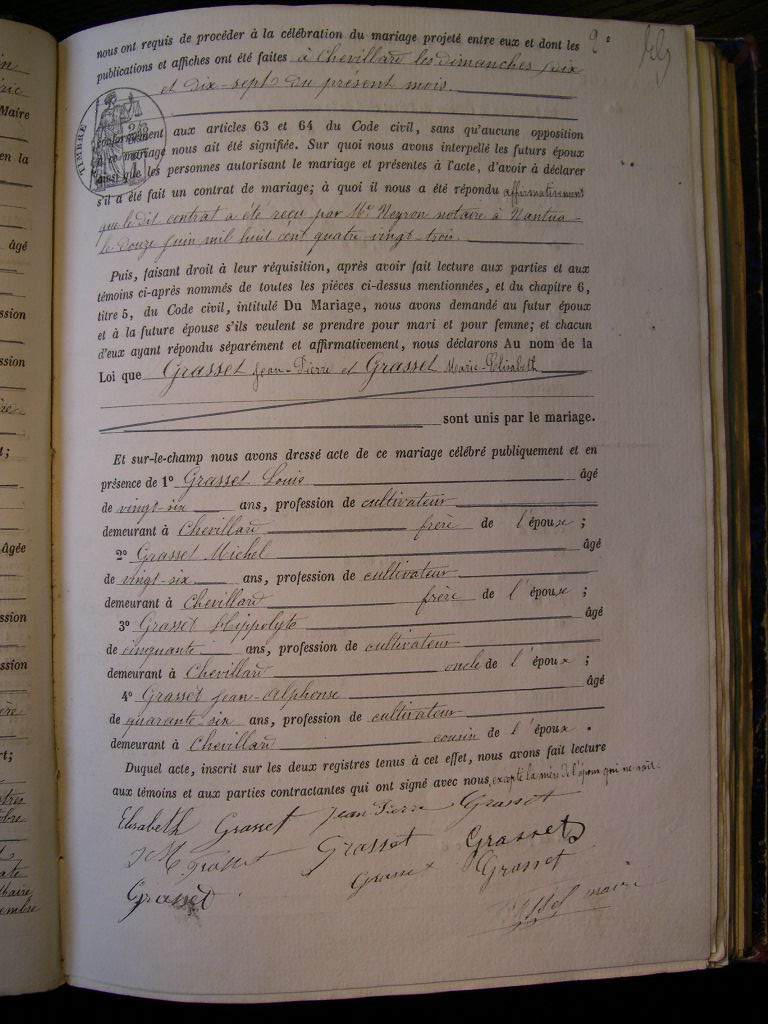 nous ont requis de procéder à la célébration du mariage projeté entre eux et dont les
publications et affiches ont été faites à Chevillard les dimanches dix
et dix-sept du présent mois.
TIMBRE
conformément aux articles 63 et 64 du Code civil, sans qu'aucune opposition
à ce mariage nous ait été signifiée. Sur quoi nous avons interpellé les futurs époux
ainsi que les personnes autorisant le mariage et présentes à l'acte, d'avoir à déclarer
s'il a été fait un contrat de mariage; à quoi il nous a été répondu affirmativement
que le dit contrat a été reçu par Me Neyron notaire à Nantua
le douze juin mil huit cent quatre vingt-trois.
Puis, faisant droit à leur réquisition, après avoir fait lecture aux parties et aux
témoins ci-après nommés de toutes les pièces ci-dessus mentionnées, et du chapitre 6,
titre 5, du Code civil, intitulé Du Mariage, nous avons demandé au futur époux
et à la future épouse s'ils veulent se prendre pour mari et pour femme; et chacun
d'eux ayant répondu séparément et affirmativement, nous déclarons Au nom de la
Loi que Grasset Jean-Pierre et Grasset Marie-Elisabeth
sont unis par le mariage.
Et sur-le-champ nous avons dressé acte de ce mariage célébré publiquement et en
présence de 1º Grasset Louis âgé
de vingt-six ans, profession de cultivateur
demeurant à Chevillard frère de l'épouse ;
2º Grasset Michel âgé
de vingt-six ans, profession de cultivateur
demeurant à Chevillard frère de l'épouse ;
3º Grasset Hippolyte âgé
de cinquante ans, profession de cultivateur
demeurant à Chevillard oncle de l'époux ;
4º Grasset Jean-Alphonse âgé
de quarante-six ans, profession de cultivateur
demeurant à Chevillard cousin de l'époux .
Duquel acte, inscrit sur les deux registres tenus à cet effet, nous avons fait lecture
aux témoins et aux parties contractantes qui ont signé avec nous excepté la mère de l'époux qui ne sait.
Elisabeth Grasset Jean Pierre Grasset
Grasset Grasset Grasset
Grasset Grasset Grasset
maire